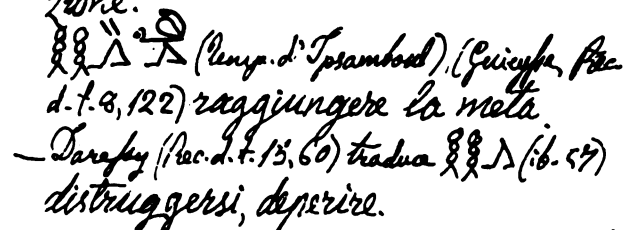 (Temp. d'Ipsamboul), (Guieysse, Rec.
d. t. 8, 122) raggiungere la meta.
— Daressy (Rec. d. t. 13, 60) traduce 𓎛𓎛𓂻 (ib. 57)
distruggersi, deperire.